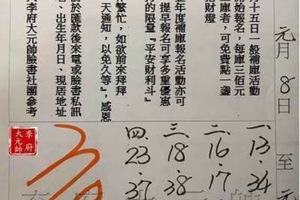 元月8日至元
十五日一般補庫活動
報名，每庫三佰元
庫者，可免費點一盞
財燈
年度補庫報名活動亦可
提早報名可享多重優惠
的限量『平安財利斗』
繁忙，如欲前來拜拜
天通知，以免久等，感恩
於匯款後來電或臉書私訊
、出生年月日、現居地址
李府大元帥臉書社團參考
一.13.34
二.16.17
三.18.38
四.23.37
李府
大元帥